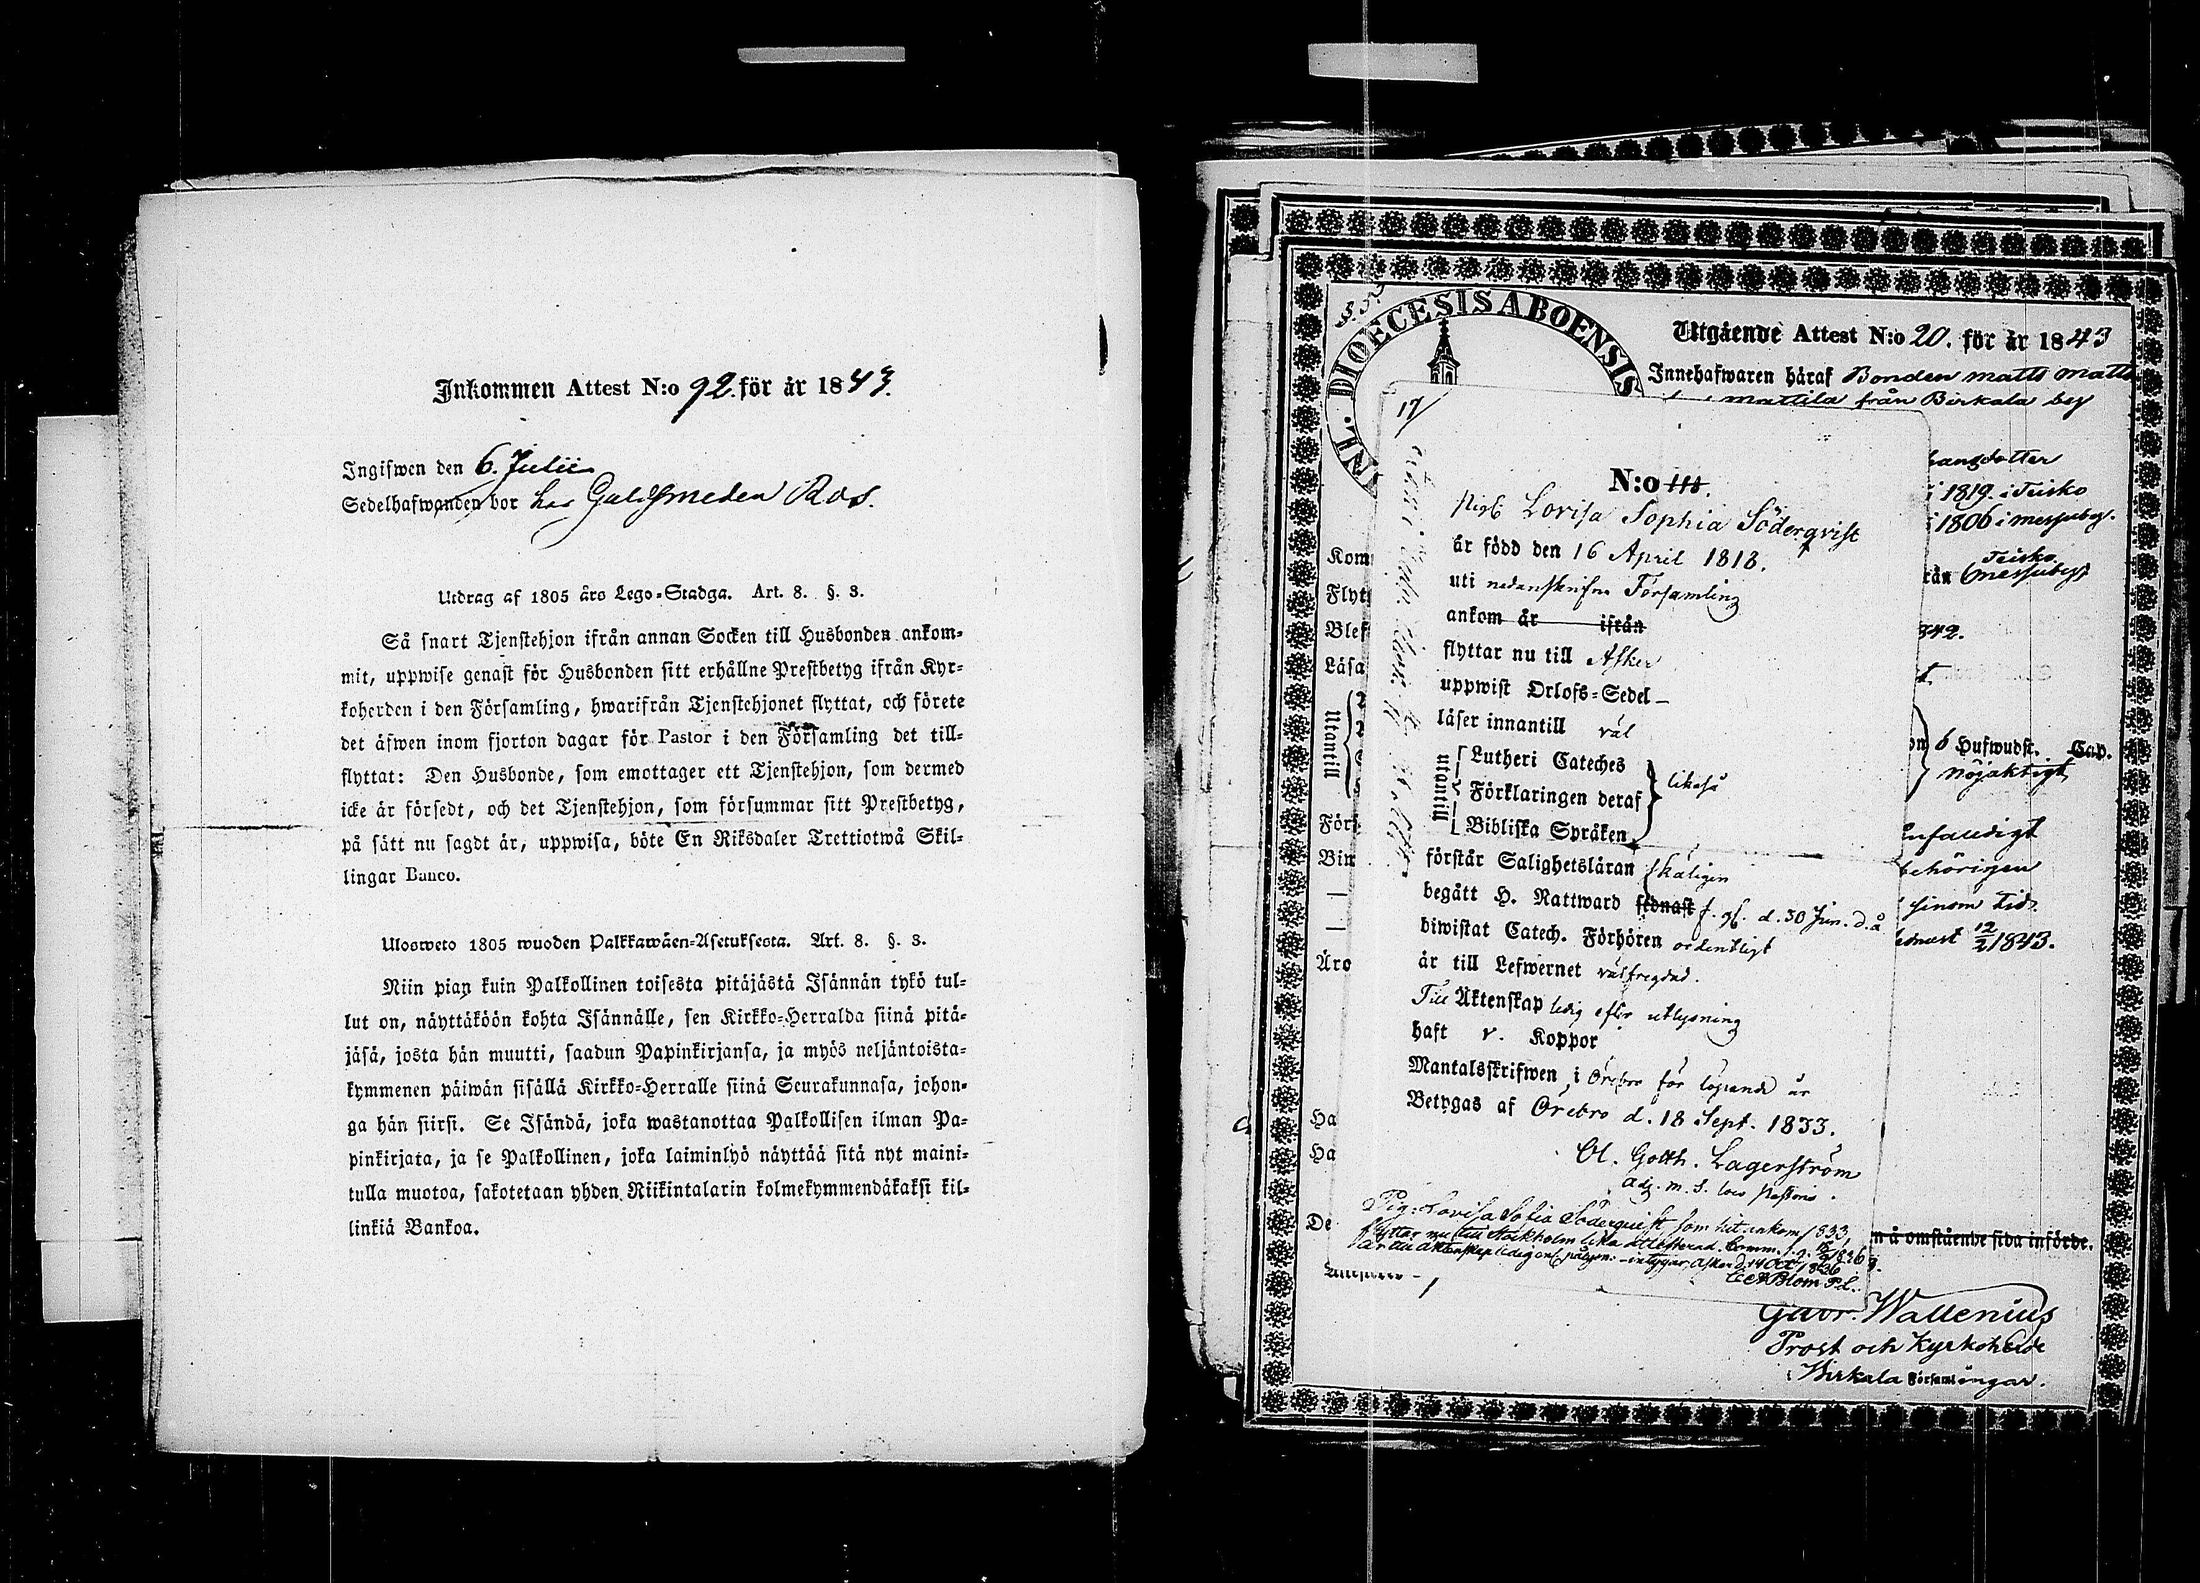 Inkommen Attest N:o 92. för år 1843.
Ingifwen den 6. Julii
Sedelhafwanden bor hos Guldsmeden Ros.
Utdrag af 1805 års Lego-Stadga. Art. 8. §. 3.
Så snart Tjenstehjon ifrån annan Socken till Husbonden ankom-
mit, uppwise genast för Husbonden sitt erhållne Prestbetyg ifrån Kyr-
koherden i den Församling, hwarifrån Tjenstehjonet flyttat, och förete
det äfwen inom fjorton dagar för Pastor i den Församling det till-
flyttat: Den Husbonde, som emottager ett Tjenstehjon, som dermed
icke är försedt, och det Tjenstehjon, som försummar sitt Prestbetyg,
på sätt nu sagdt är, uppwisa, böte En Riksdaler Trettiotwå Skil-
lingar Banco.
Ulosweto 1805 wuoden Palkkawäen-Asetuksesta. Art. 8. §. 3.
Niin pian kuin Palkollinen toisesta pitäjästä Isännän tykö tul-
lut on, näyttäköön kohta Isännälle, sen Kirkko-Herralda siinä pitä-
jäsä, josta hän muutti, saadun Papinkirjansa, ja myös neljäntoista-
kymmenen päiwän sisällä Kirkko-Herralle siinä Seurakunnasa, johon-
ga hän siirsi. Se Isändä, joka wastanottaa Palkollisen ilman Pa-
pinkirjata, ja se Palkollinen, joka laiminlyö näyttää sitä nyt maini-
tulla muotoa, sakotetaan yhden Riikintalarin kolmekymmendäkaksi kil-
linkiä Bankoa.
DIOECESIS ABOENSIS
Utgående Attest N:o 20. för år 1843
Innehafwaren häraf Bonden Matts Matts
Mattila från Birkala by
hansdotter
i 1819. i Teisko
i 1806 i Messuby.
Teisko
rån Messuby
842.
6 Hufwudst. Cap.
nöjaktigt
enfaldigt
behörigen
sinom tid
ednast 12/2 1843.
Kom
Flytt
Blef
Läsa
Utantill
Förs
Äro
Ha
Ha
De
n å omstående sida införde.
Gabr. Wallenius
Prost och Kyrkoherde
i Birkala Församlingar.
17/
N:o 118.
Pig. Lovisa Sophia Söderqvist
är född den 16 April 1818.
uti nedanskrifne Församling
ankom år ifrån
flyttar nu till Asker
uppwist Orlofs-Sedel –
läser innantill väl
utantill
Lutheri Cateches
Förklaringen deraf
Bibliska Språken
likaså
förstår Salighetsläran skäligen
begått H. Nattward sednast f. g. d. 30 Jun. d. å
biwistat Catech. Förhören ordentligt
är till Lefwernet välfregdad.
Till Äktenskap ledig efter utlysning
haft v. Koppor
Mantalsskrifwen i Örebro för löpande år
Betygas af Örebro d. 18 Sept. 1833.
Ol. Gotth. Lagerström
adj. m. s. loco Pastoris.
Pig. Lovisa Sofia Söderquist som hit inkom 1833,
flyttar nu till Stockholm lika attesterad.
Asker d. 14 Oct. 1836
Blom P. L.